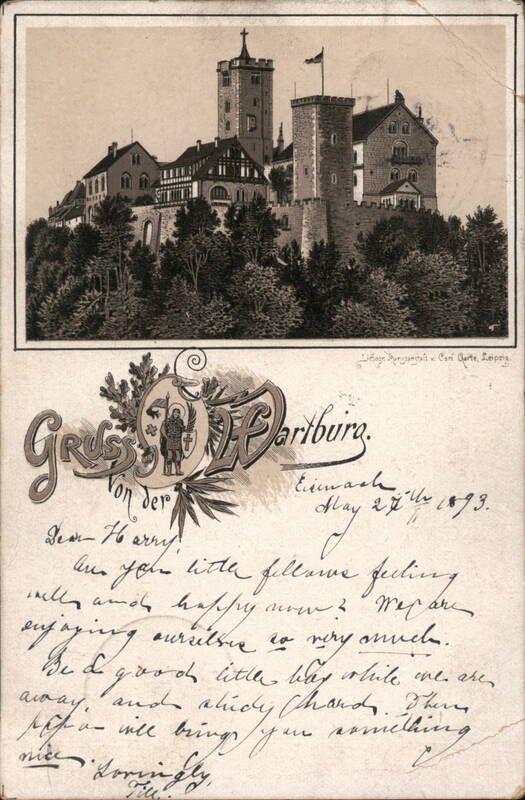 Lithogr. Kunstanstalt v. Carl Garte, Leipzig.
Gruss
von der
Wartburg.
Eisenach
May 27th 1893.
Dear Harry
Are you little fellows feeling
well and happy now? We are
enjoying ourselves so very much.
Be a good little boy while we are
away, and study hard. Then
Papa will bring you something
nice.
Lovingly,
Till.